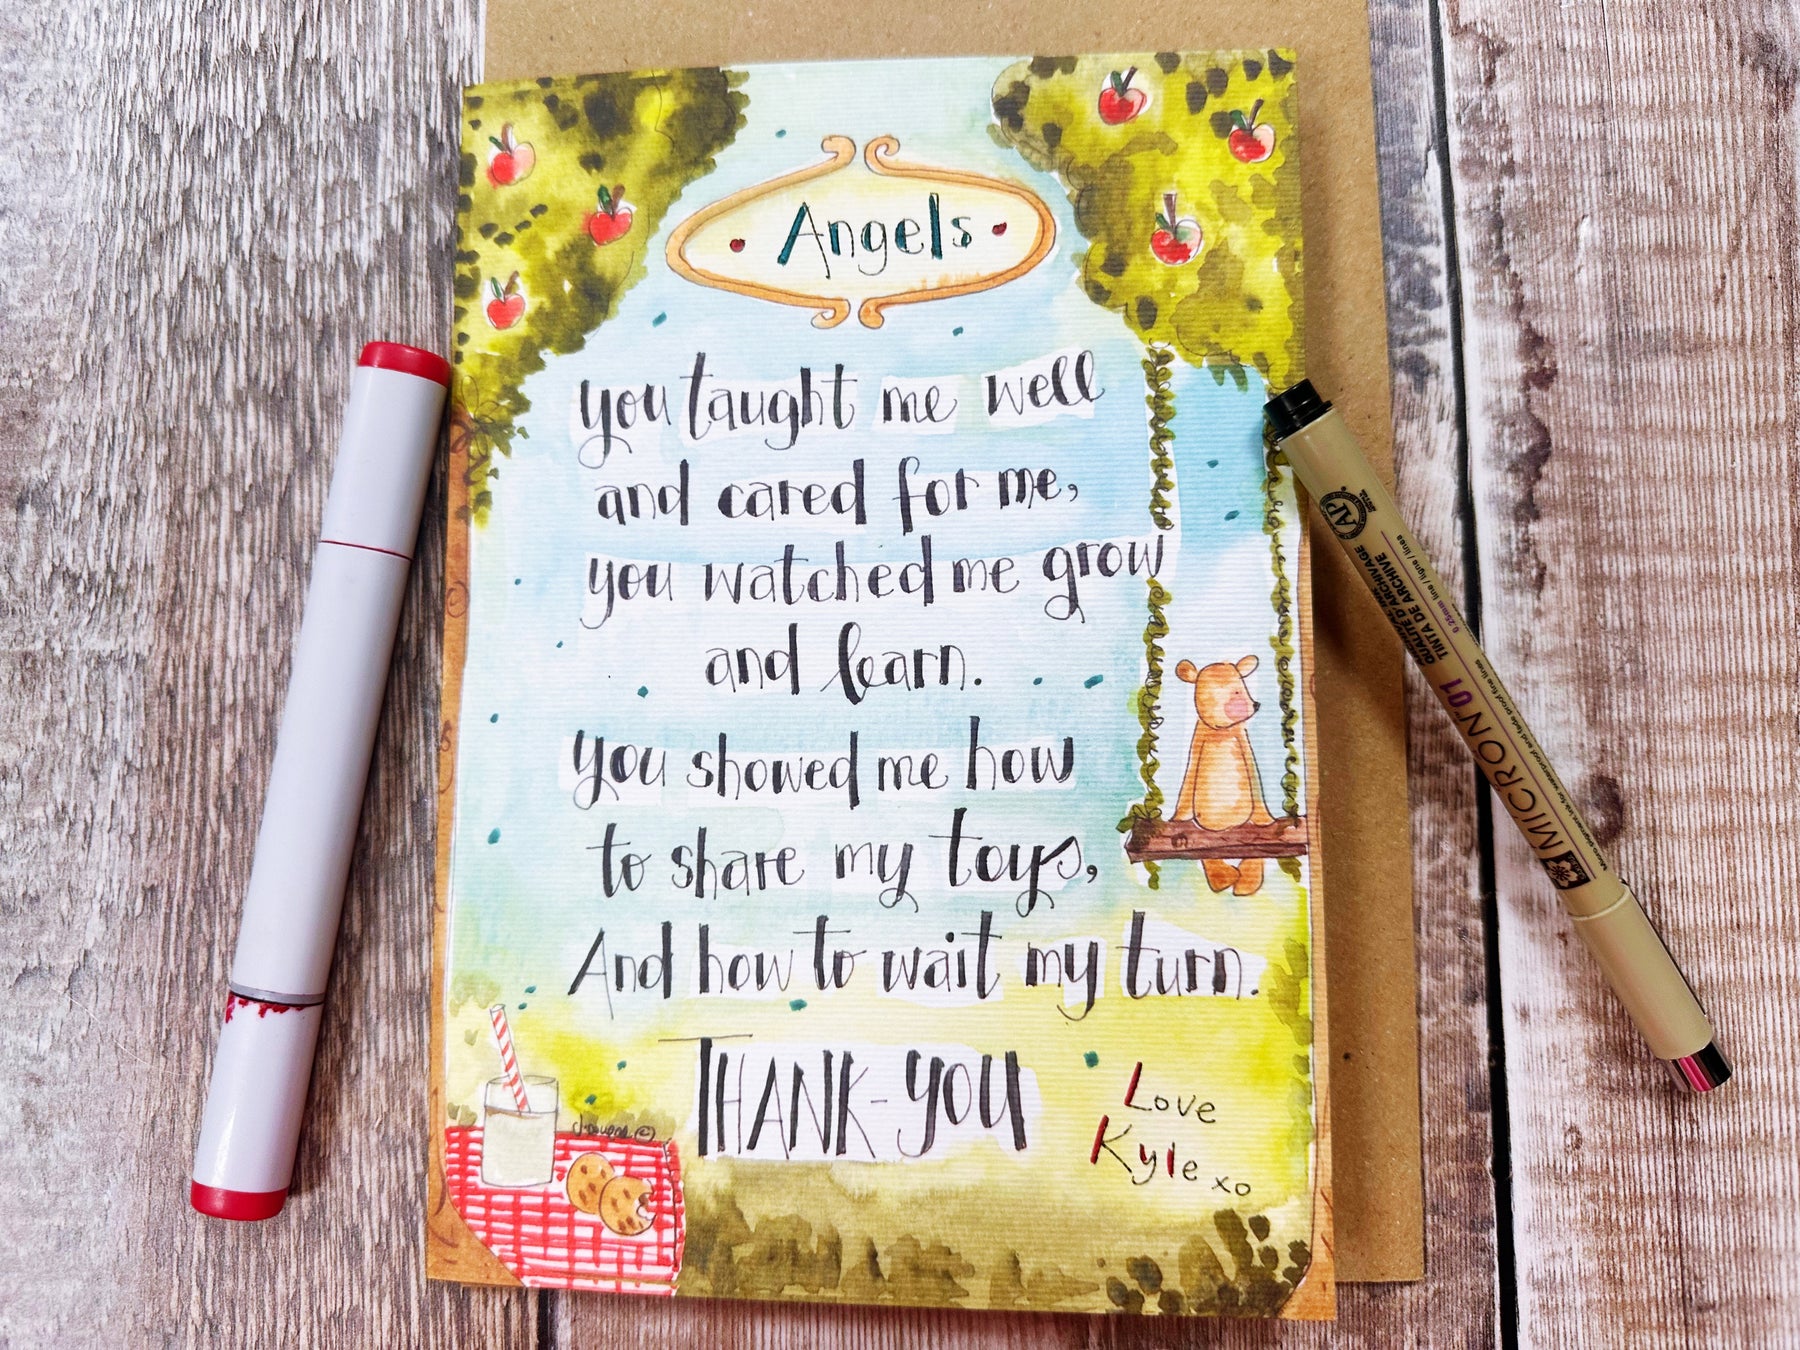 Angels
you taught me well
and cared for me,
you watched me grow
and learn.
you showed me how
to share my toys,
And how to wait my turn.
THANK-YOU
Love
Kyle xo
AP
MICRON 01
0.25mm line / ligne / línea
QUALITÉ D'ARCHIVAGE
TINTA DE ARCHIVE